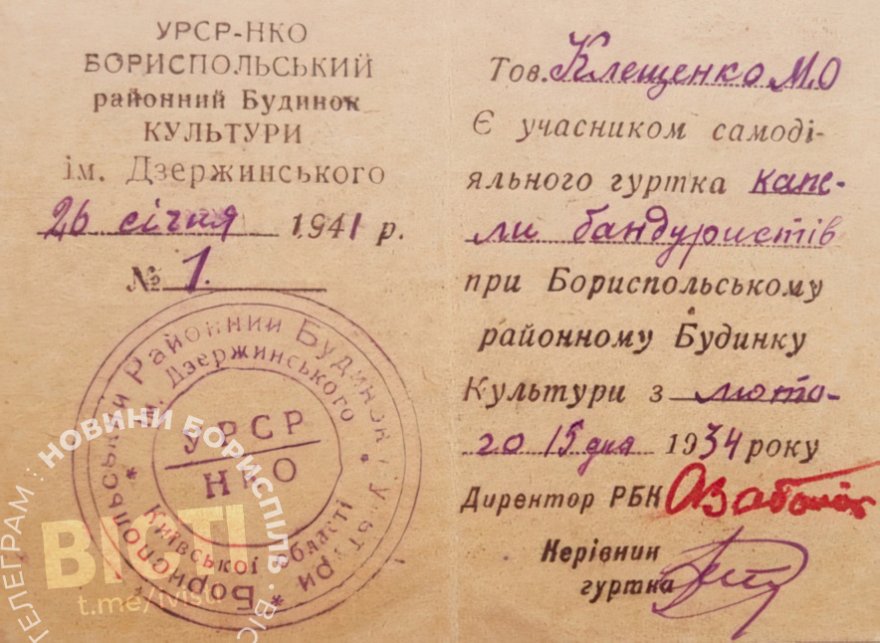 УРСР-НКО
БОРИСПОЛЬСЬКИЙ
районний Будинок
КУЛЬТУРИ
ім. Дзержинського
26 січня 1941 р.
№ 1.
Бориспольський Районний Будинок Культури
ім. Дзержинського
УРСР
НКО
Київської області
Тов. Клещенко М.О
Є учасником самоді-
яльного гуртка капе-
ли бандуристів
при Бориспольському
районному Будинку
Культури з люто-
го 15 дня 1934 року
Директор РБК
Керівник
гуртка
ТЕЛЕГРАМ : НОВИНИ БОРИСПІЛЬ · ВІСТІ
ВІСТІ
t.me/ivisti